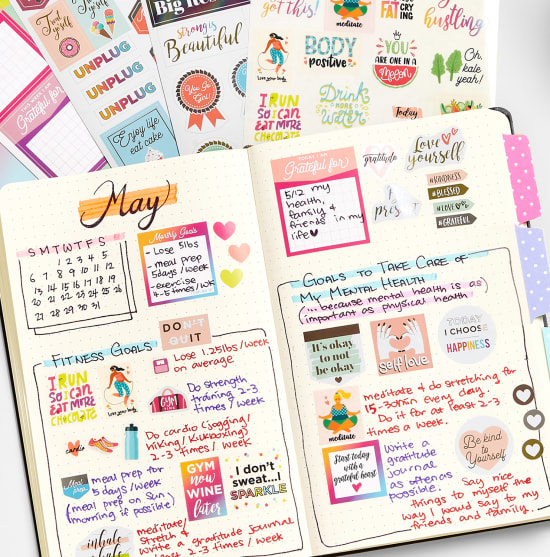 Treat Yo'self
UNPLUG
UNPLUG
UNPLUG
Enjoy life
eat cake
Grateful for
Big
Strong is
Beautiful
You Go
Girl!
got this!
meditate
FAT
CRY
ING
hustling
Love your body
BODY
positive
YOU
ARE ONE IN A
Melon
Oh,
kale
yeah!
I RUN
SO I CAN
EAT MORE
CHOCOLATE
Drink
MORE
water
Today
May
S M T W T F S
1 2 3 4 5
6 7 8 9 10 11 12
13 14 15 16 17 18 19
20 21 22 23 24 25 26
27 28 29 30 31
Monthly Goals
- Lose 5lbs
- meal prep
5days/week
- exercise
4-5 times/wk
DON'T
QUIT
FITNESS GOALS
Lose 1.25lbs/week
on average.
I RUN
SO I CAN
EAT MORE
CHOCOLATE
Love your body
Do strength
training 2-3
times / week
cardio
Do cardio (jogging/
hiking/kickboxing)
2-3 times / week
Meal
prep
meal prep for
5 days/week
(meal prep on Sun
morning if possible)
GYM
NOW
WINE
later
I don't
sweat...I
SPARKLE
inhale
meditate/
stretch &
write a gratitude journal
at least 2-3 times/week
TODAY I AM
Grateful for
5/12 my
health,
family &
friends in my
life
gratitude
Love
yourself
#KINDNESS
#BLESSED
#LOVE
#GRATEFUL
GOALS TO TAKE CARE OF
MY MENTAL HEALTH
(...because mental health is as
important as physical health)
It's okay
to not
be okay
self love
TODAY I
CHOOSE
HAPPINESS
meditate
meditate & do stretching for
15-30min every day.
Do it for at least 2-3
times a week.
Start today
with a
grateful heart
Write a
gratitude
journal
as often as
possible.
Be kind
to
Yourself
Say nice
things to myself the
way I would say to my
friends and family.